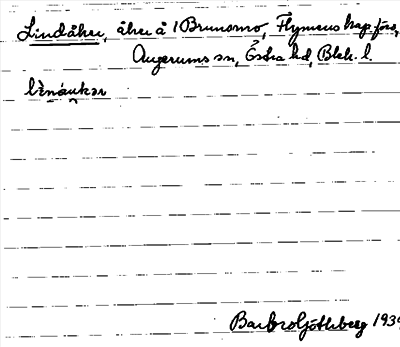 Lindåker, åker å 1 Brunsmo, Flymens kap.förs,
Augerums sn, Östra hd, Blek. l.
Barbro Göthberg 193